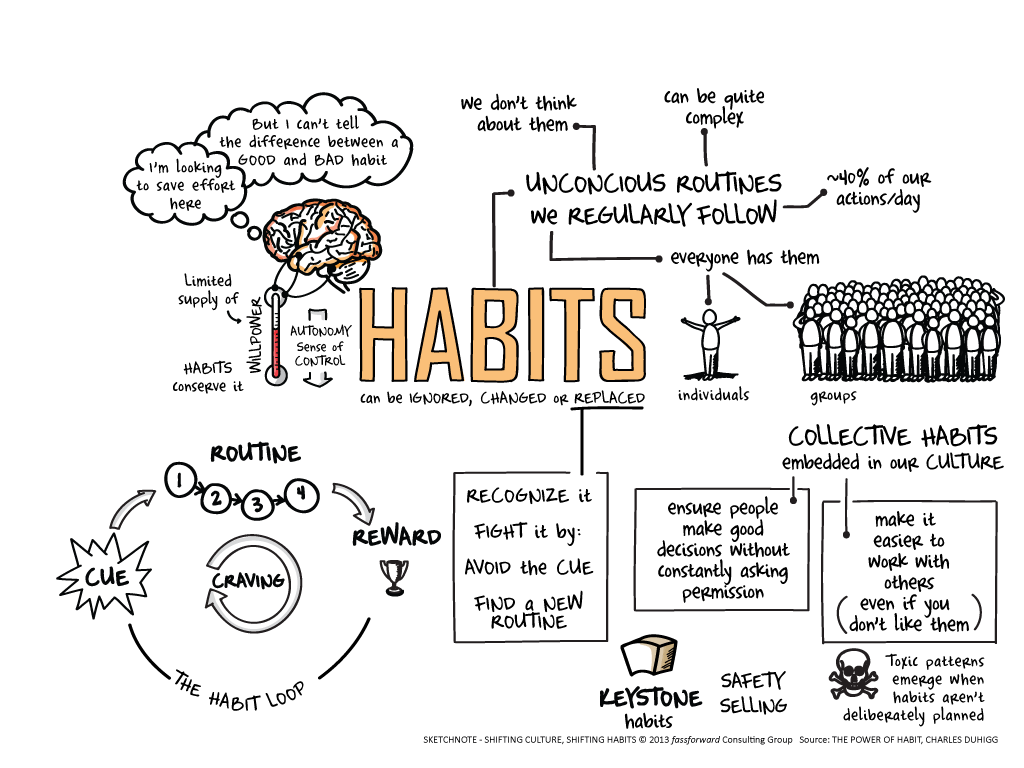 But I can't tell
the difference between a
GOOD and BAD habit
I'm looking
to save effort
here
Limited
supply of
WILLPOWER
HABITS
conserve it
AUTONOMY
Sense of
CONTROL
we don't think
about them
can be quite
complex
UNCONCIOUS ROUTINES
we REGULARLY FOLLOW
~40% of our
actions/day
everyone has them
individuals
groups
HABITS
can be IGNORED, CHANGED or REPLACED
ROUTINE
1
2
3
4
REWARD
CUE
CRAVING
THE HABIT LOOP
RECOGNIZE it
FIGHT it by:
AVOID the CUE
FIND a NEW
ROUTINE
COLLECTIVE HABITS
embedded in our CULTURE
ensure people
make good
decisions without
constantly asking
permission
make it
easier to
work with
others
(even if you
don't like them)
KEYSTONE
habits
SAFETY
SELLING
Toxic patterns
emerge when
habits aren't
deliberately planned
SKETCHNOTE - SHIFTING CULTURE, SHIFTING HABITS © 2013 fassforward Consulting Group Source: THE POWER OF HABIT, CHARLES DUHIGG